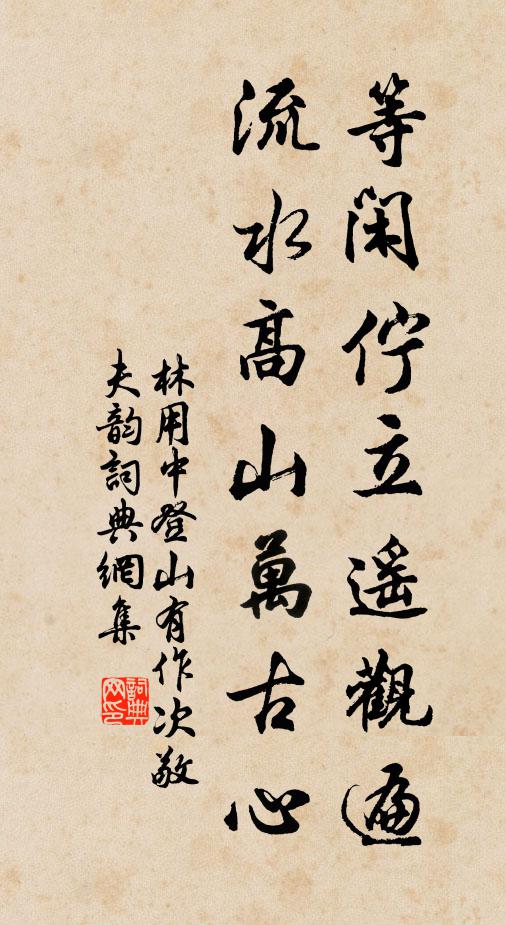 等閑佇立遥觀遍
流水高山萬古心
林用中登山有作次敬
夫韵詞典網集
詞典
网印